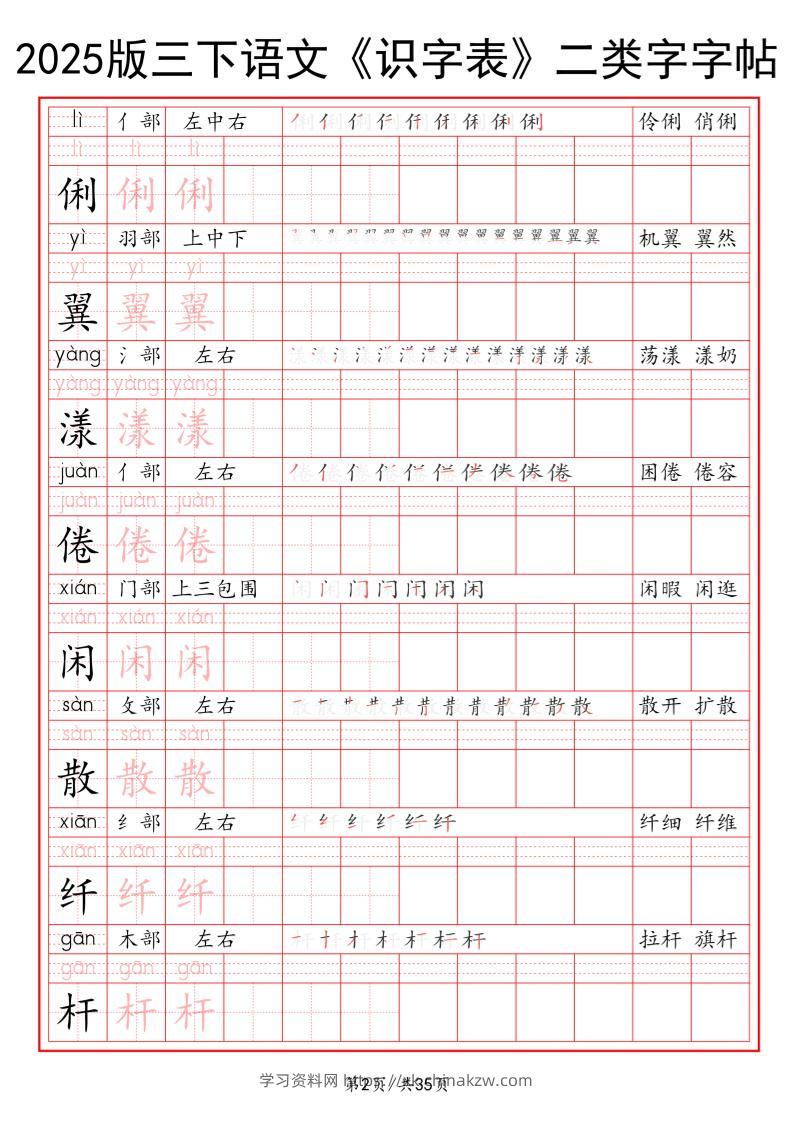 2025版三下语文《识字表》二类字字帖
lì 亻部 左中右 俐 伶俐 俏俐
lì lì lì
俐 俐 俐
yì 羽部 上中下 翼 机翼 翼然
yì yì yì
翼 翼 翼
yàng 氵部 左右 漾 荡漾 漾奶
yàng yàng yàng
漾 漾 漾
juàn 亻部 左右 倦 困倦 倦容
juàn juàn juàn
倦 倦 倦
xián 门部 上三包围 闲 闲暇 闲逛
xián xián xián
闲 闲 闲
sàn 攵部 左右 散 散开 扩散
sàn sàn sàn
散 散 散
xiān 纟部 左右 纤 纤细 纤维
xiān xiān xiān
纤 纤 纤
gān 木部 左右 杆 拉杆 旗杆
gān gān gān
杆 杆 杆
学习资料网
第2页/共35页